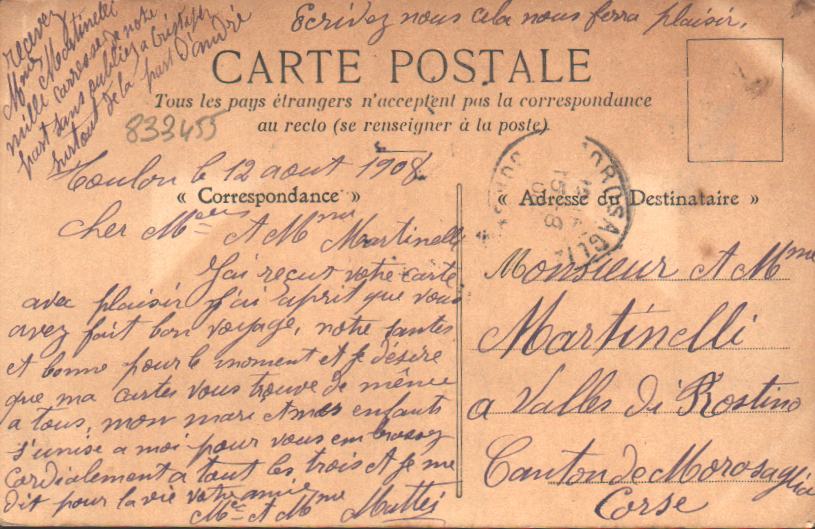 Ecrivez nous cela nous ferra plaisir.
recevez
Mmes Martinelli
mille caresse de notre
part sans oubliez a Créstofer
surtout de la part d'andré
CARTE POSTALE
Tous les pays étrangers n'acceptent pas la correspondance
au recto (se renseigner à la poste)
833455
Toulon le 12 aout 1908
« Correspondance »
Cher Mr A Mme Martinelli
J'ai recut votre carte
avec plaisir j'ai aprit que vous
avez fait bon voyage, notre santes
et bonne pour le moment et je désire
que ma cartes vous trouve de même
a tous, mon mari et mes enfants
s'unise a moi pour vous embrassez
cordialement a tout les trois et je me
dit pour la vie votre amie
Mr A Mme Mattei
MOROSAGLIA
« Adresse du Destinataire »
Monsieur A Mme
Martinelli
a Valles di Rostino
Canton de Morosaglia
Corse